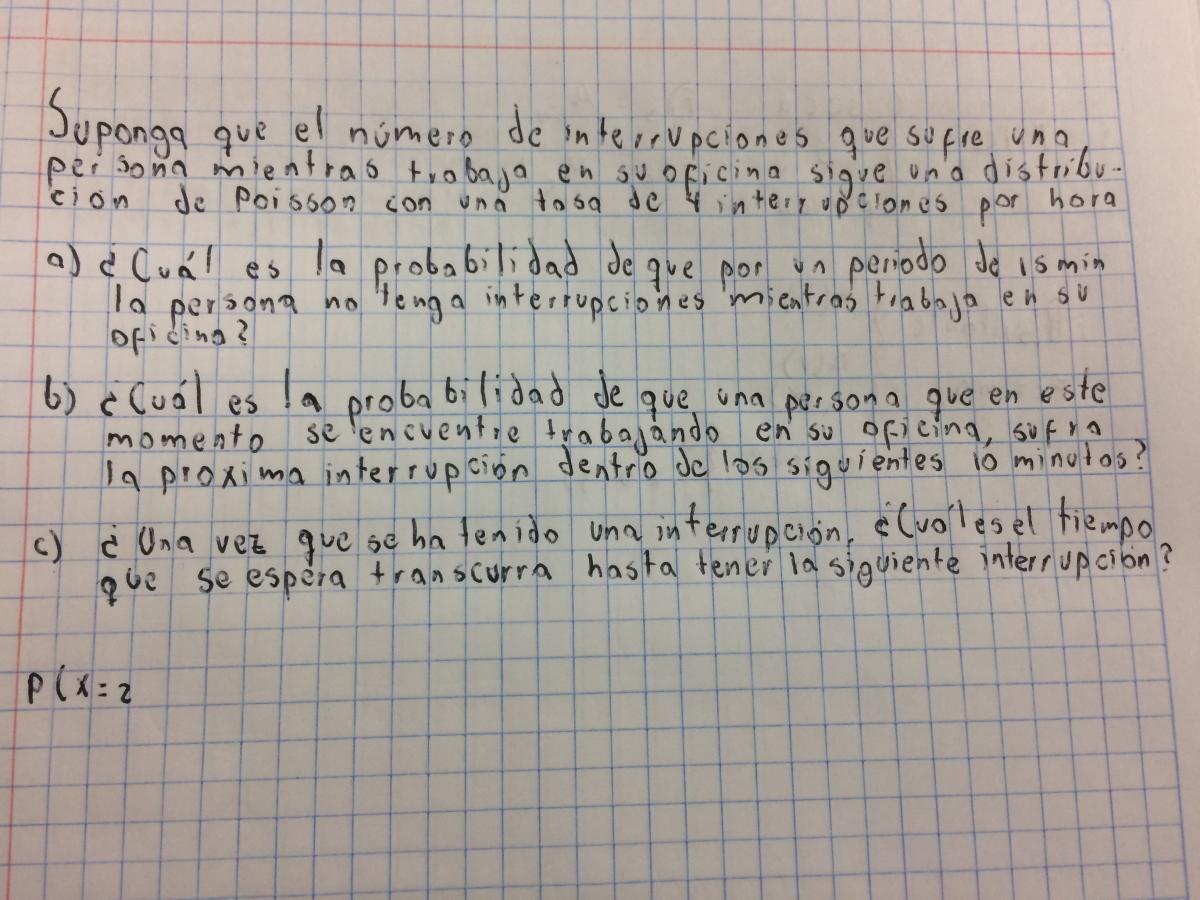 Suponga que el número de interrupciones que sufre una
persona mientras trabaja en su oficina sigue una distribu-
ción de Poisson con una tasa de 4 interrupciones por hora
a) ¿Cuál es la probabilidad de que por un periodo de 15 min
la persona no tenga interrupciones mientras trabaja en su
oficina?
b) ¿Cuál es la probabilidad de que una persona que en este
momento se encuentre trabajando en su oficina, sufra
la proxima interrupción dentro de los siguientes 10 minutos?
c) ¿Una vez que se ha tenido una interrupción, ¿Cuál es el tiempo
que se espera transcurra hasta tener la siguiente interrupción?
P(x=2